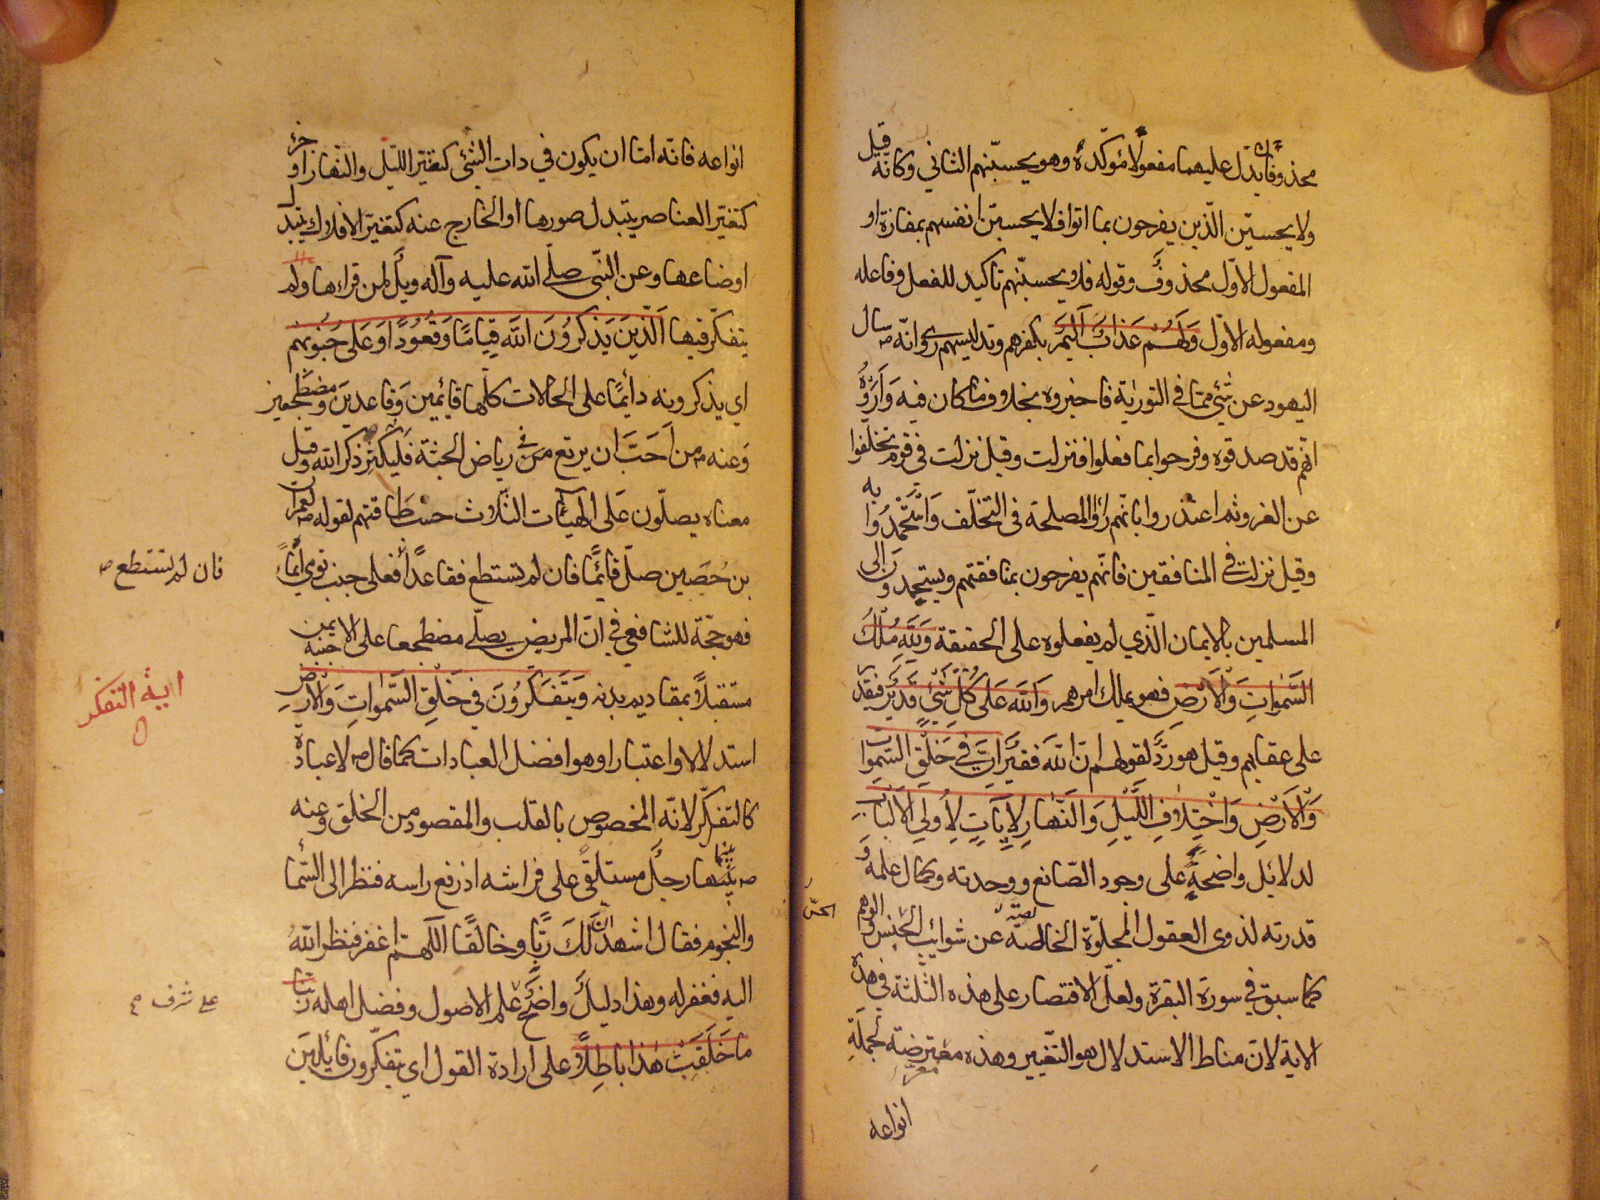 محذوفان يدل عليهما مفعولا مؤكده وهو يحسبنهم الثاني وكانه قيل
ولا يحسبن الذين يفرحون بما اتوا فلا يحسبن انفسهم بمفازة او
المفعول الاول محذوف وقوله فلا يحسبنهم تاكيد للفعل وفاعله
ومفعوله الاول وَلَهُمْ عَذَابٌ اَلِيمٌ بكفرهم وتدليسهم روى انه ص سال
اليهود عن شئ مما في التورية فاخبروه بخلاف ما كان فيه وَاَرَوْهُ
انهم قد صدقوه وفرحوا بما فعلوا فنزلت وقيل نزلت في قوم تخلفوا
عن الغزو ثم اعتذروا بانهم راوا المصلحة في التخلف وَاسْتَحْمَدُوا به
وقيل نزلت في المنافقين فانهم يفرحون بمنافقتهم ويستحمدون الى
المسلمين بالايمان الذي لم يفعلوه على الحقيقة وَلِلّٰهِ مُلْكُ
السَّمٰوَاتِ وَالْاَرْضِ فهو يملك امرهم وَاللّٰهُ عَلٰى كُلِّ شَئٍ قَدِيرٌ فيقدر
على عقابهم وقيل هو ردٌّ لقولهم ان الله فقير اِنَّ فِي خَلْقِ السَّمٰوَاتِ
وَالْاَرْضِ وَاخْتِلَافِ اللَّيْلِ وَالنَّهَارِ لَاٰيَاتٍ لِاُولِي الْاَلْبَابِ
لدلائل واضحة على وجود الصانع ووحدته وكمال علمه و
قدرته لذوى العقول المجلوّة الخالصة عن شوائب الحس والوهم
الحسّ
كما سبق في سورة البقرة ولعل الاقتصار على هذه الثلثة في هذه
الاية لان مناط الاستدلال هو التغيير وهذه معترضة لجملة
انواعه
انواعه فانه اما ان يكون في ذات الشئ كتغير الليل والنهار او جزئه
كتغير العناصر بتبدل صورها او الخارج عنه كتغير الافلاك بتبدل
اوضاعها وعن النبى صلّى الله عليه وآله ويل لمن قراءها ولم
يتفكر فيها اَلَّذِينَ يَذْكُرُونَ اللّٰهَ قِيَامًا وَقُعُودًا وَعَلٰى جُنُوبِهِمْ
اى يذكرونه دائما على الحالات كلها قائمين وقاعدين ومضطجعين
وعنه ص من اَحَبَّ ان يرتع في رياض الجنة فليكثر ذكر الله وقيل
معناه يصلون على الهيئات الثلاث حسب طاقتهم لقوله ص لعمران
بن حُصَين صلّ قائما فان لم تستطع فقاعدا فعلى جنب تومي ايماءً
فان لم تستطع ص
فهو حجة للشافعي في ان المريض يصلى مضطجعا على جنبه الايمن
مستقبلا بمقاديم بدنه وَيَتَفَكَّرُونَ فِي خَلْقِ السَّمٰوَاتِ وَالْاَرْضِ
اية التفكر
استدلالا واعتبارا وهو افضل العبادات كما قال ص لا عبادة
كالتفكر لانه المخصوص بالقلب والمقصود من الخلق وعنه
ص بينما رجل مستلقى على فراشه اذ رفع راسه فنظر الى السماء
والنجوم فقال اشهد ان لك ربا وخالقا اللّهم اغفر فنظر الله
اليه فغفر له وهذا دليل واضح علم الاصول وفضل اهله رَبَّنَا
على شرف
مَا خَلَقْتَ هٰذَا بَاطِلًا على ارادة القول اى يتفكرون قائلين